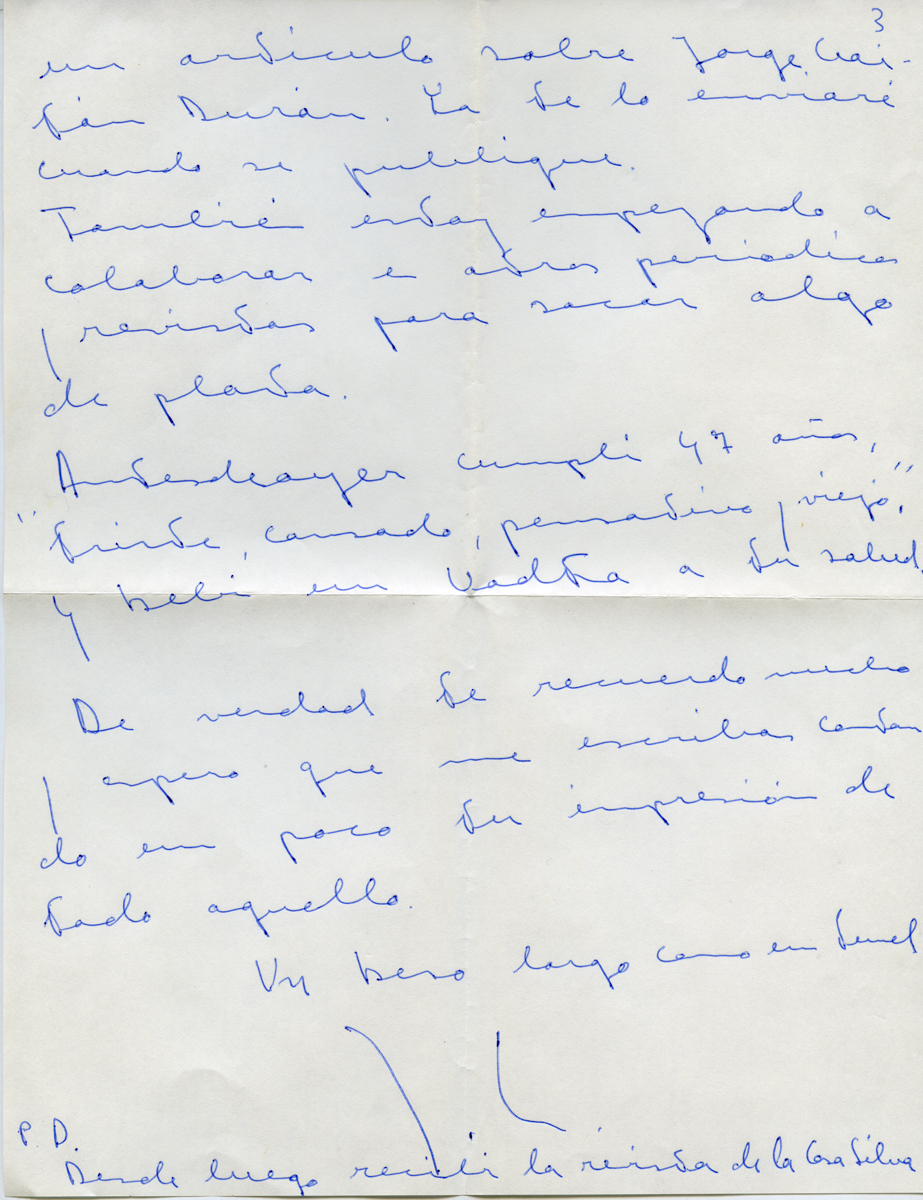 3
un articulo sobre Jorge Gai-
tán Durán. Ya te lo enviaré
cuando se publique.
También estoy empezando a
colaborar en otros periodicos
y revistas para sacar algo
de plata.
Antesdeayer cumplí 47 años,
"triste, cansado, pensativo y viejo",
y bebí un Vodtka a tu salud.
De verdad te recuerdo mucho
y espero que me escribas contan
do un poco tu impresión de
todo aquello.
Un beso largo como un tunel
P.D.
Desde luego recibí la revista de la Casa Silva